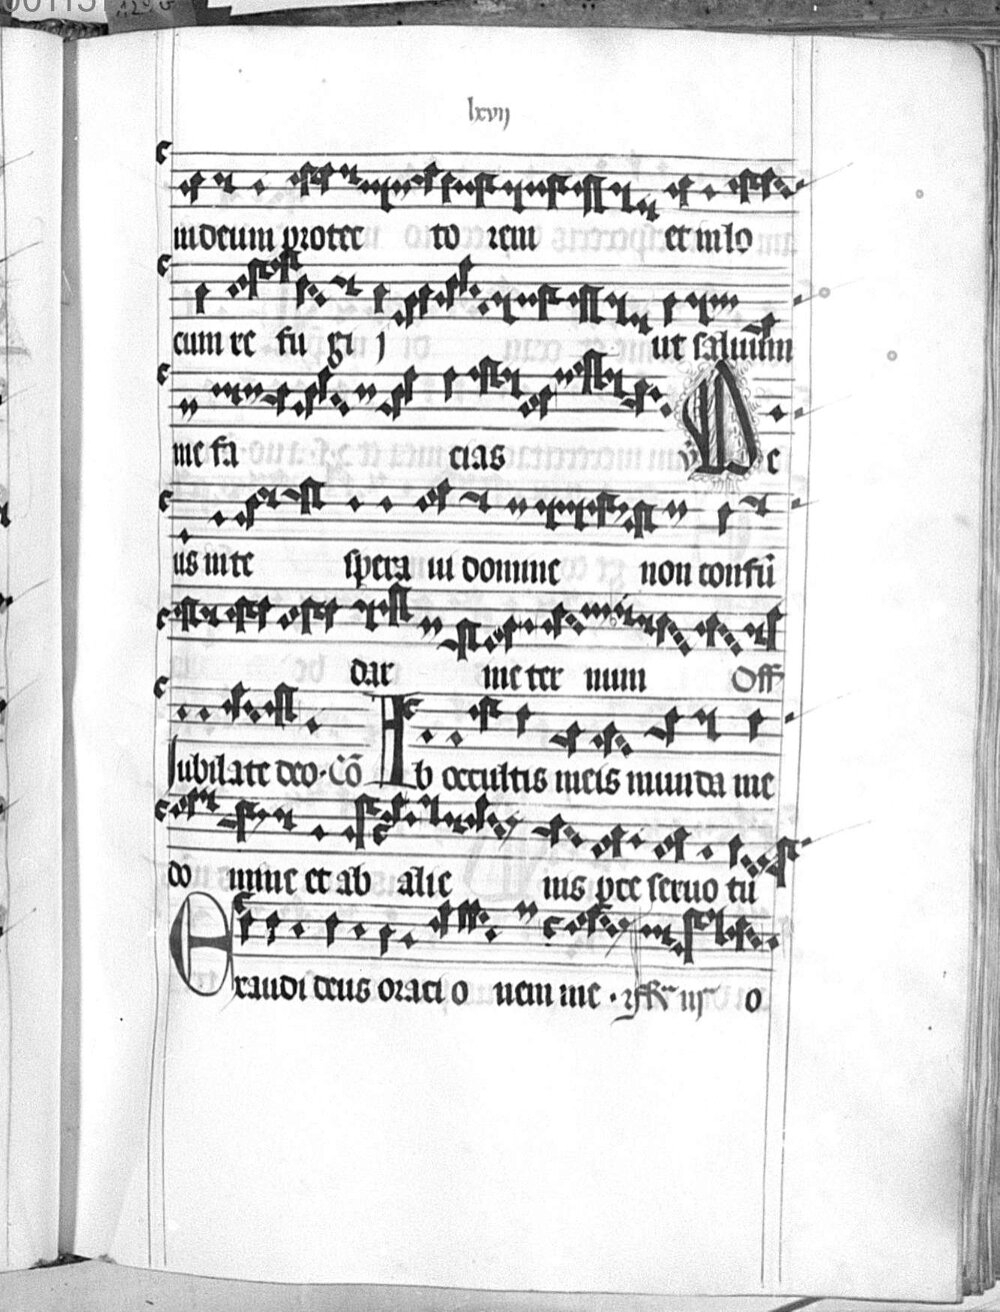 lxvij
indeum protec to rem et in lo
cum re fu gi j ut saluum
me fa cias De
us in te spera ui domine non confū
dar me ter num Off
Iubilate deo. Cō Ab occultis meis munda me
do mine et ab alie nis pce seruo tu
Exaudi deus oraci o nem me o